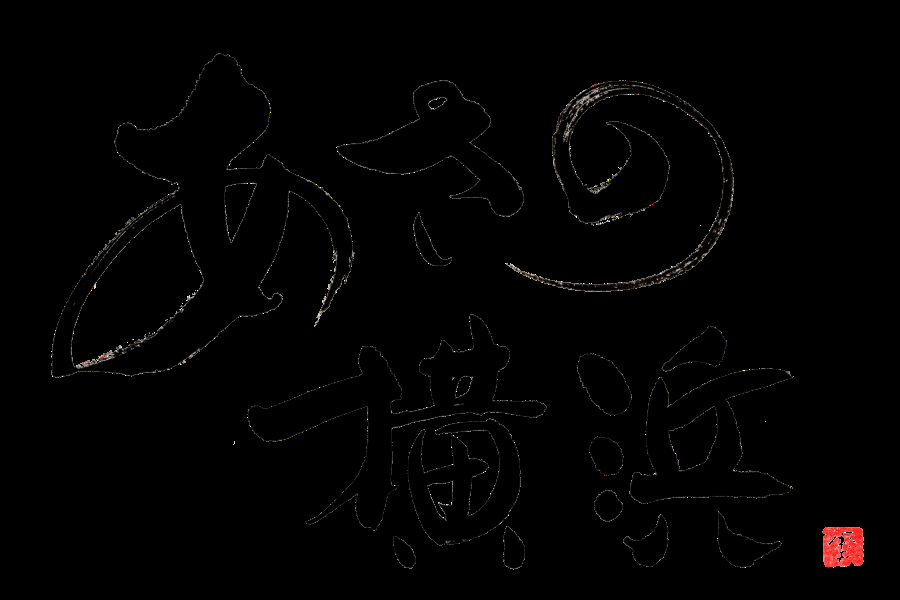 あさの
横浜